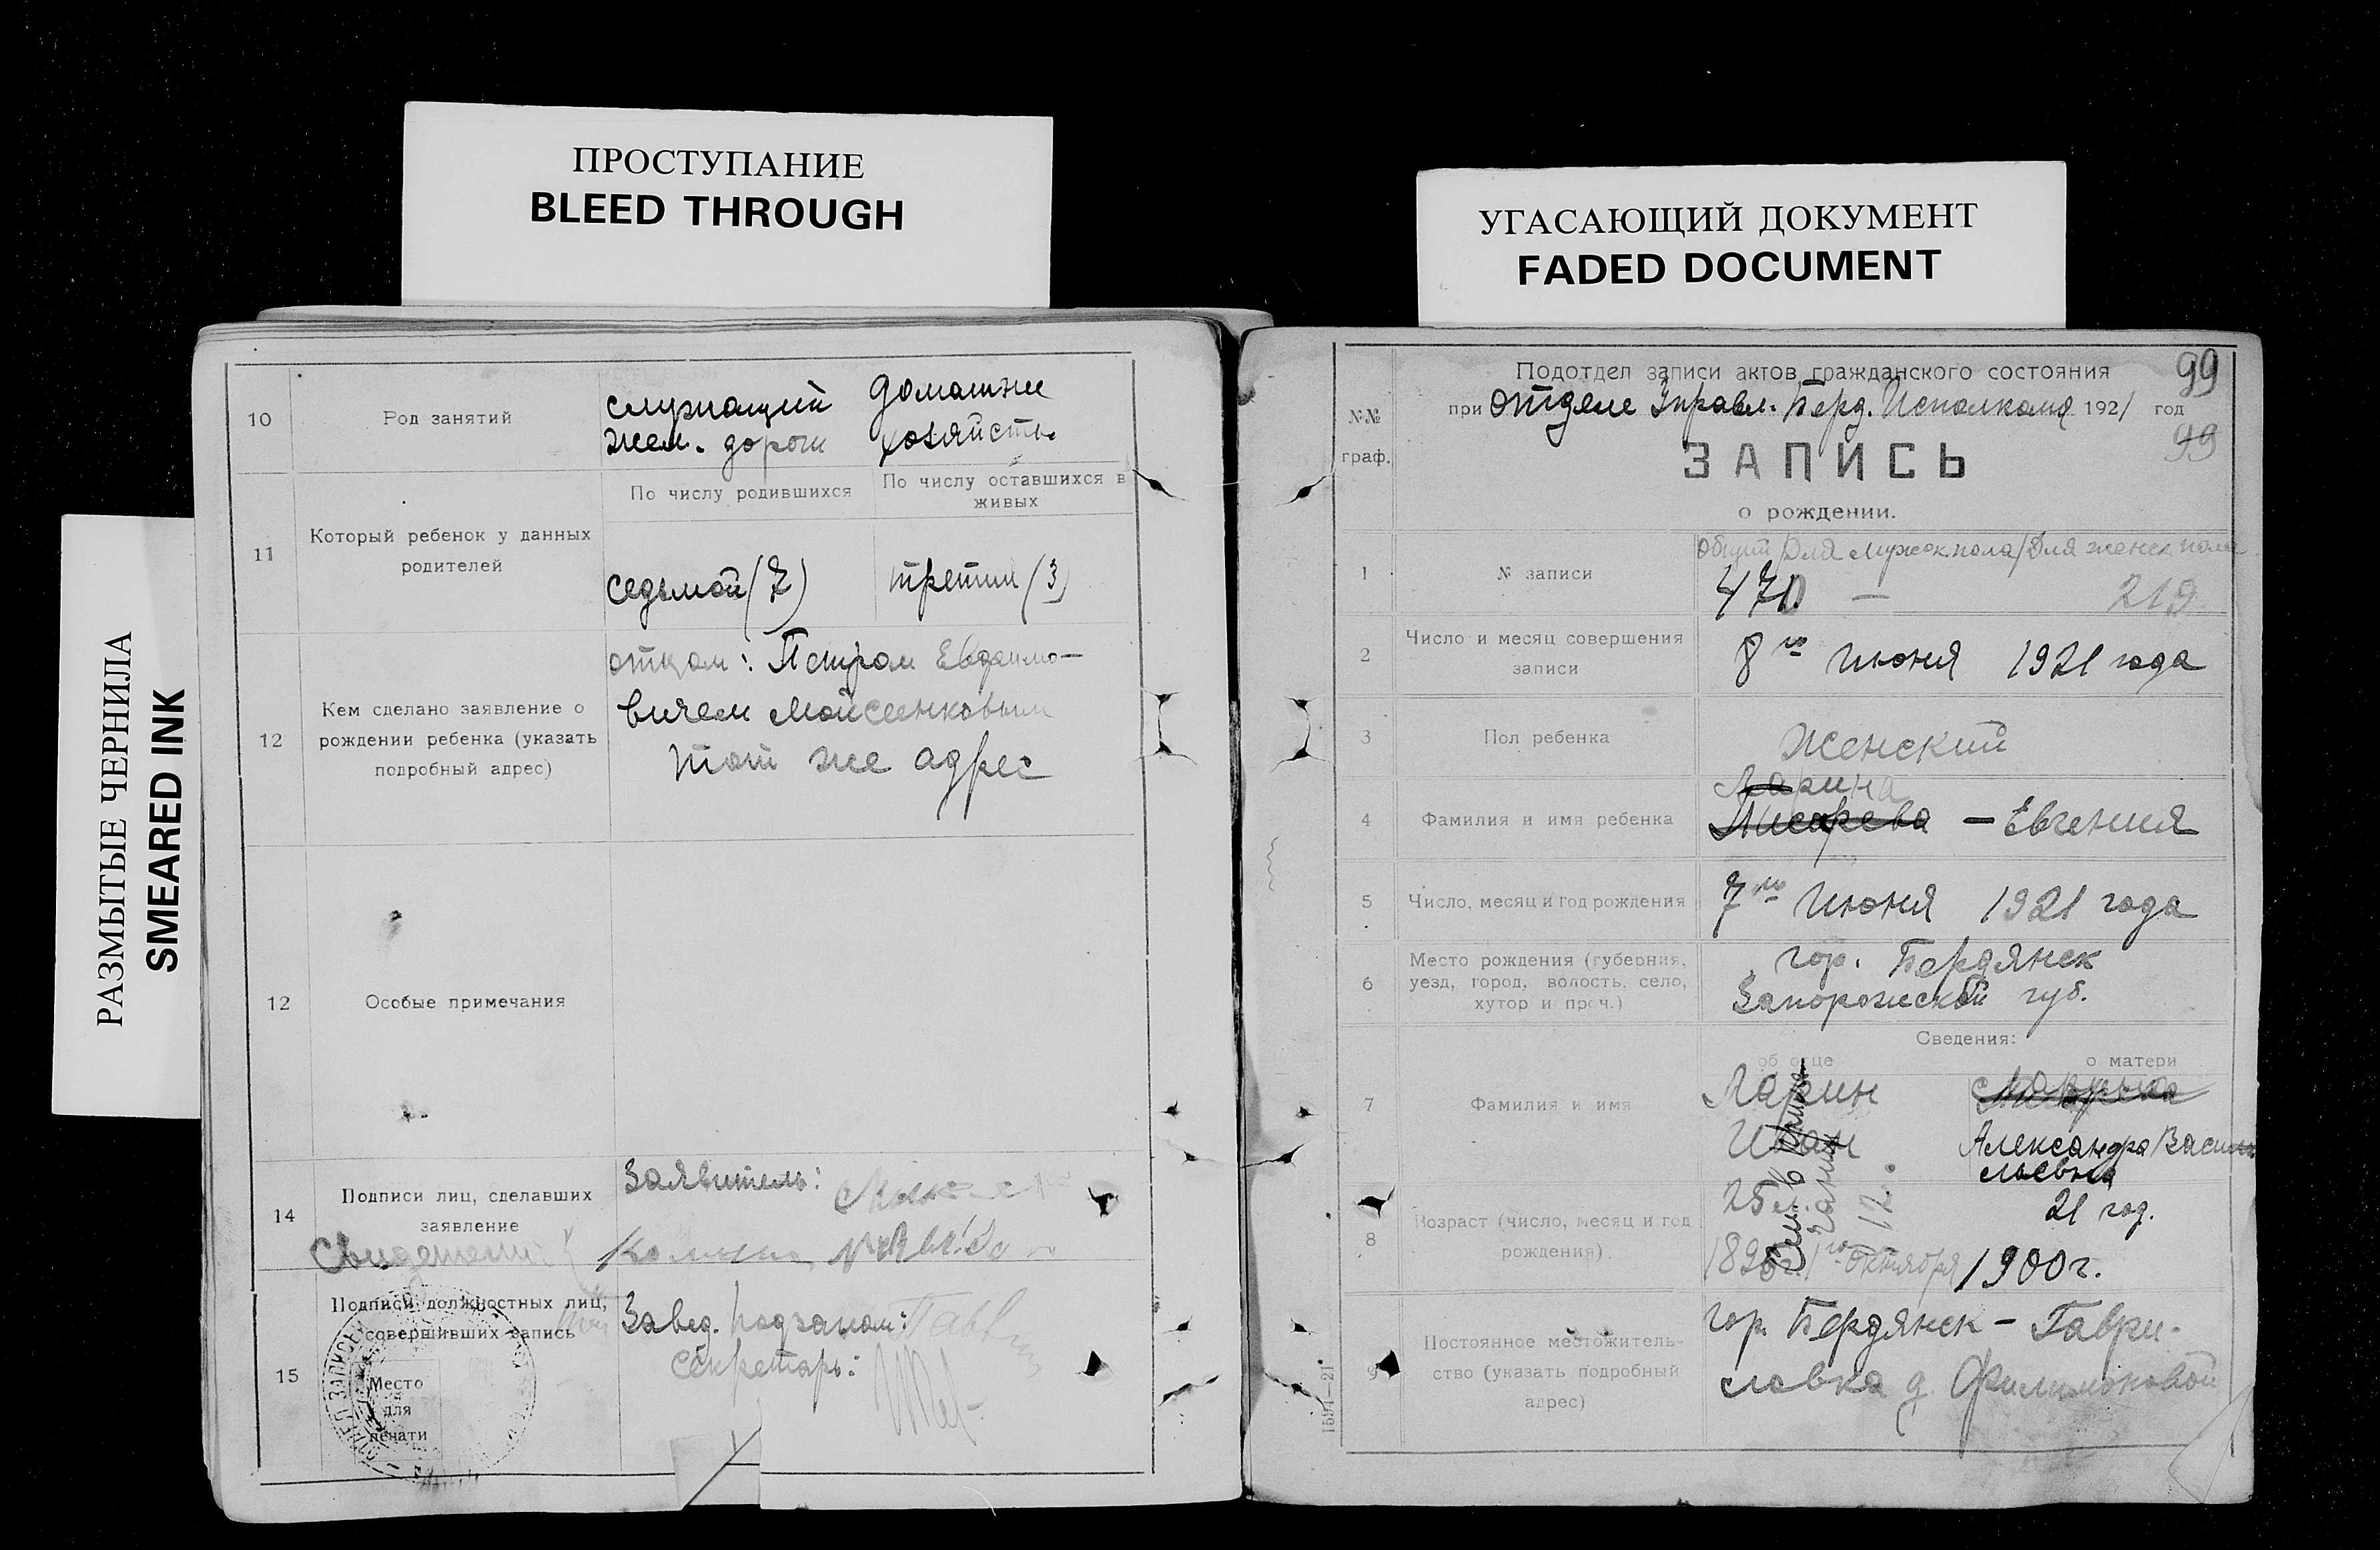 ПРОСТУПАНИЕ
BLEED THROUGH
УГАСАЮЩИЙ ДОКУМЕНТ
FADED DOCUMENT
РАЗМЫТЫЕ ЧЕРНИЛА
SMEARED INK
10
Род занятий
служащий
жел. дороги
домашнее
хозяйство
11
Который ребенок у данных
родителей
По числу родившихся
По числу оставшихся в
живых
седьмой (7)
третий (3)
12
Кем сделано заявление о
рождении ребенка (указать
подробный адрес)
отцом: Петром Евдокимо-
вичем Мойсеенковым
тот же адрес
12
Особые примечания
14
Подписи лиц, сделавших
заявление
Заявитель:
Свидетели:
15
Подписи должностных лиц,
совершивших запись
Место
для
печати
Завед. подзагом:
Секретарь:
99
Подотдел записи актов гражданского состояния
при отделе Управл. Берд. Исполкома 1921 год
99
№№
граф.
ЗАПИСЬ
о рождении.
1
№ записи
Общий/Для мужск пола/Для женск пола
470 — 219
2
Число и месяц совершения
записи
8го июня 1921 года
3
Пол ребенка
Женский
4
Фамилия и имя ребенка
Ларина
Писарева — Евгения
5
Число, месяц и год рождения
7го июня 1921 года
6
Место рождения (губерния,
уезд, город, волость, село,
хутор и проч.)
гор. Бердянск
Запорожской губ.
Сведения:
об отце
о матери
7
Фамилия и имя
Ларин
Иван
Александра Васи
льевна
8
Возраст (число, месяц и год
рождения)
25 л.
1896г. 1го октября
21 год.
1900г.
9
Постоянное местожитель-
ство (указать подробный
адрес)
гор. Бердянск - Гаври-
ловка д. Филимоновой
1594—21